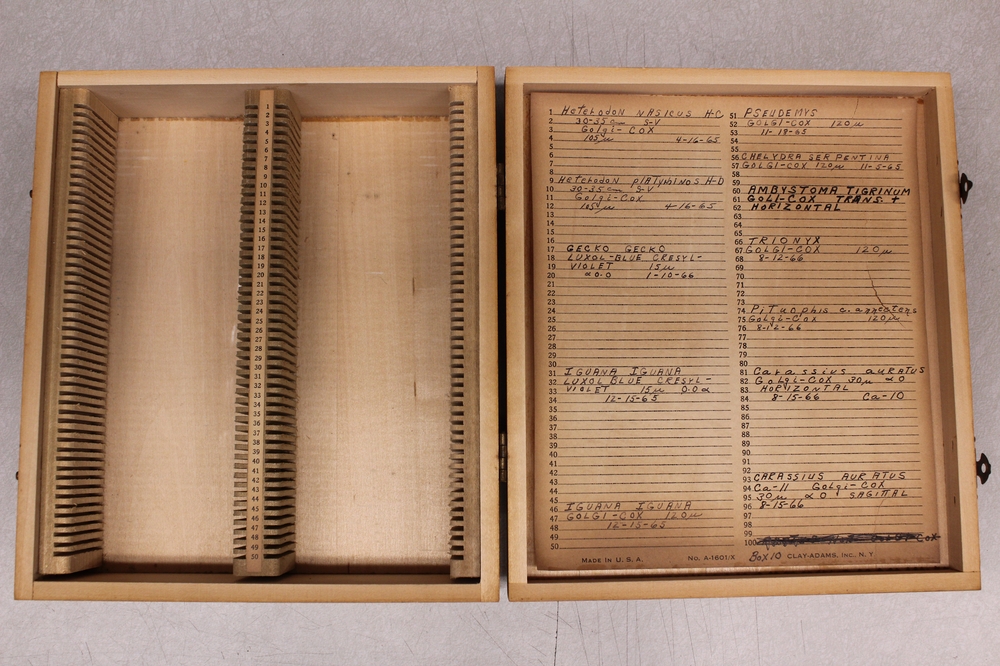 1
2
3
4
5
6
7
8
9
10
11
12
13
14
15
16
17
18
19
20
21
22
23
24
25
26
27
28
29
30
31
32
33
34
35
36
37
38
39
40
41
42
43
44
45
46
47
48
49
50
1 Heterodon NASICUS H-C
2 30-35 S-V
3 Golgi-Cox
4 105µ 4-16-65
5
6
7
8
9 Heterodon PlATyhiNOS H-D
10 30-35 S-V
11 Golgi-Cox
12 105µ 4-16-65
13
14
15
16
17 GECKO GECKO
18 LUXOL-BLUE CRESYL-
19 VIOLET 15µ
20 1-10-66
21
22
23
24
25
26
27
28
29
30
31 IGUANA IGUANA
32 LUXOL BLUE CRESYL-
33 VIOLET 15µ
34 12-15-65
35
36
37
38
39
40
41
42
43
44
45
46 IGUANA IGUANA
47 GOLGI-COX 120µ
48 12-15-65
49
50
51 PSEUDEMYS
52 GOLGI-COX 120µ
53 11-18-65
54
55
56 CHELYDRA SERPENTINA
57 GOLGI-COX 120µ 11-5-65
58
59
60 AMBYSTOMA TIGRINUM
61 GOLI-COX TRANS. +
62 HORIZONTAL
63
64
65
66 TRIONYX
67 GOLGI-COX 120µ
68 8-12-66
69
70
71
72
73
74 PiTuophis c. annectens
75 Golgi-Cox 120µ
76 8-12-66
77
78
79
80
81 Carassius auRATUS
82 Golgi-Cox 30µ
83 HORIZONTAL
84 8-15-66 Ca-10
85
86
87
88
89
90
91
92
93 CARASSIUS AURATUS
94 Ca-11 Golgi-Cox
95 30µ SAGITTAL
96 8-15-66
97
98
99
100 Cox
MADE IN U. S. A. No. A-1601/X Box 10 CLAY-ADAMS, INC. N. Y.